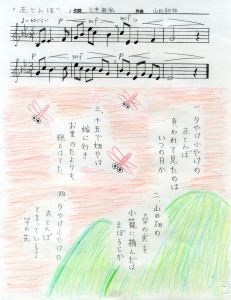 赤とんぼ
作詞 三木露風
作曲 山田耕筰
p mf p
p mf p
一、夕やけ小やけの
赤とんぼ
負われて見たのは
いつの日か
二、山の畑の
桑の実を
小籠に摘んだは
まぼろしか
三、十五で姐やは
嫁に行き
お里のたよりも
絶えはてた
四、夕やけ小やけの
赤とんぼ
とまっているよ
竿の先